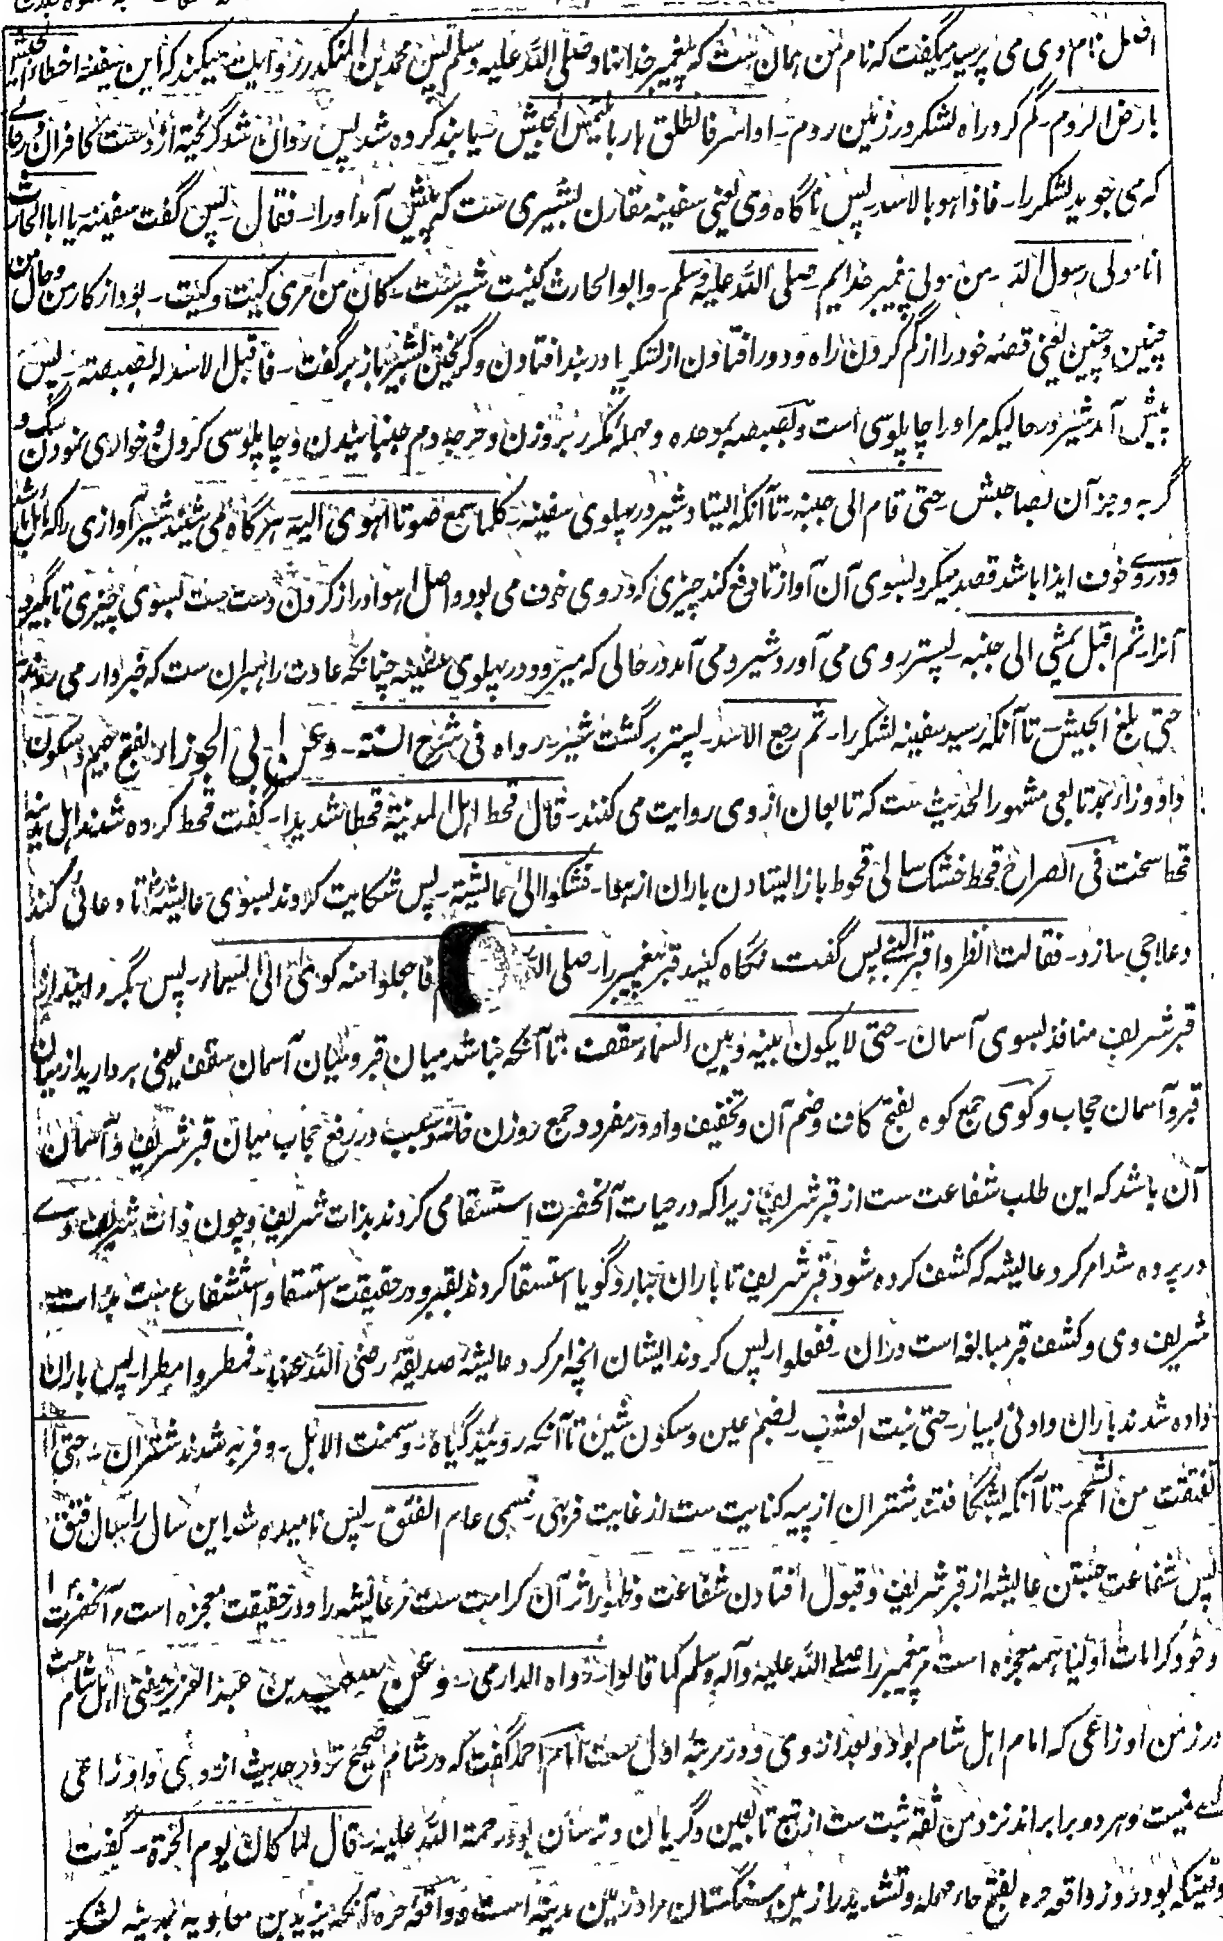 نام وی می پرسید میگفت که نام من همان ست که پیغمبر خدا نهاد صلی الله علیه وسلم پس محمد بن المنکدر روایت میکند که این سفینه اخطأ الجیش
بارض الروم ـ گم کرد راه لشکر در زمین روم ـ او اسر فانطلق هاربا یلتمس الجیش ـ یا بند کرده شد پس روان شد گریخته از دست کافران در حالے
که می جوید لشکر را ـ فاذا هو بالاسد ـ پس ناگاه وی یعنی سفینه مقارن بشیری ست که پیش آمد او را ـ فقال ـ پس گفت سفینه یا ابا الحارث
انا مولی رسول الله ـ من مولی پیغمبر خدایم صلی الله علیه وسلم ـ وابو الحارث کنیت شیر ست ـ کان من امری کیت وکیت ـ بود از کار من و حال من
چنین و چنین یعنی قصه خود را از گم کردن راه و دور افتادن از لشکر یا در بند افتادن و گریختن بشیر باز برگفت ـ فاقبل الاسد له بصبصة ـ پس
پیش آمد شیر در حالیکه مر او را چاپلوسی است و بصبصه بموحده و مهمله مکرر بر وزن دحرجه دم جنبانیدن و چاپلوسی کردن و خواری نمودن سگ و
گربه و جز آن بصاحبش حتی قام الی جنبه ـ تا آنکه ایستاد شیر در پهلوی سفینه ـ کلما سمع صوتا اهوی الیه هرگاه می شنید شیر آوازی را که
و در وے خوف ایذا باشد قصد میکرد بسوی آن آواز تا دفع کند چیزی که در وی خوف می بود و اصل اهوا دراز کردن دست ست بسوی چیزی تا بگیرد
آنرا ـ ثم اقبل یمشی الی جنبه ـ پستر روی می آورد شیر و می آمد در حالی که میرود در پهلوی سفینه چنانکه عادت راهبران ست که خبردار می
حتی بلغ الجیش ـ تا آنکه رسید سفینه لشکر را ـ ثم رجع الاسد ـ پستر برگشت شیر ـ رواه فی شرح السنة ـ وعن ابی الجوزاء بفتح جیم و سکون
واو و زاء بمد تابعی مشهور الحدیث ست که تابعان از وی روایت می کنند ـ قال قحط اهل المدینة قحطا شدیدا ـ گفت قحط کرده شدند اهل مدینه
قحط سخت فی الصراح قحط خشک سالی قحوط باز ایستادن باران از هوا ـ فشکوا الی عائشة ـ پس شکایت کردند بسوی عائشه تا دعائی کند
و علاجی سازد ـ فقالت انظروا قبر النبی پس گفت نگاه کنید قبر پیغمبر را ـ صلی فاجعلوا منه کوی الی السماء ـ پس بگردانید از
قبر شریف منافذ بسوی آسمان ـ حتی لا یکون بینه وبین السماء سقف ـ تا آنکه نباشد میان قبر و میان آسمان سقف یعنی بردارید از میان
قبر و آسمان حجاب و کوی جمع کوه بفتح کاف و ضم آن و تخفیف واو در مفرد و جمع روزن خانه و سبب در رفع حجاب میان قبر شریف و آسمان
آن باشد که این طلب شفاعت ست از قبر شریف زیرا که در حیات آنحضرت استسقا می کردند بذات شریف و چون ذات شریف وے
در پرده شد امر کرد عائشه که کشف کرده شود قبر شریف تا باران ببارد گویا استسقا کردند بقبر و در حقیقت استسقا و استشفاع ست بذات
شریف وی و کشف قبر مبالغه است دران ـ ففعلوا ـ پس کردند ایشان انچه امر کرد عائشه صدیقه رضی الله عنها ـ فمطروا مطرا ـ پس باران
داده شدند باران دادنی بسیار ـ حتی نبت العشب ـ بضم عین و سکون شین تا آنکه روئید گیاه ـ وسمنت الابل ـ و فربه شدند شتران ـ حتی
تفتقت من الشحم ـ تا آنکه بشگافتند شتران از پیه کنایت ست از غایت فربهی ـ فسمی عام الفتق ـ پس نامیده شد این سال را سال فتق
پس شفاعت جستن عائشه از قبر شریف و قبول افتادن شفاعت و ظهور اثر آن کرامت ست مر عائشه را و در حقیقت معجزه است مر آنحضرت را
و خود کرامات اولیا همه معجزه است مر پیغمبر را صلی الله علیه وآله وسلم کما قالوا ـ رواه الدارمی ـ وعن سعید بن عبد العزیز مفتی اهل شام ست
در زمن اوزاعی که امام اهل شام بود و بعد از وی و در مرتبه اولی ست امام احمد گفت که در شام صحیح تر در حدیث از وی و اوزاعی
کسے نیست و هر دو برابر اند نزد من ثقه ثبت ست از تبع تابعین و گریان و ترسان بود رحمة الله علیه ـ قال لما کان یوم الحرة ـ گفت
وقتیکه بود روز واقعه حره بفتح حاء مهمله و تشدید را زمین سنگستان مراد زمین مدینه است و واقعه حره آنکه یزید بن معاویه بمدینه لشکر